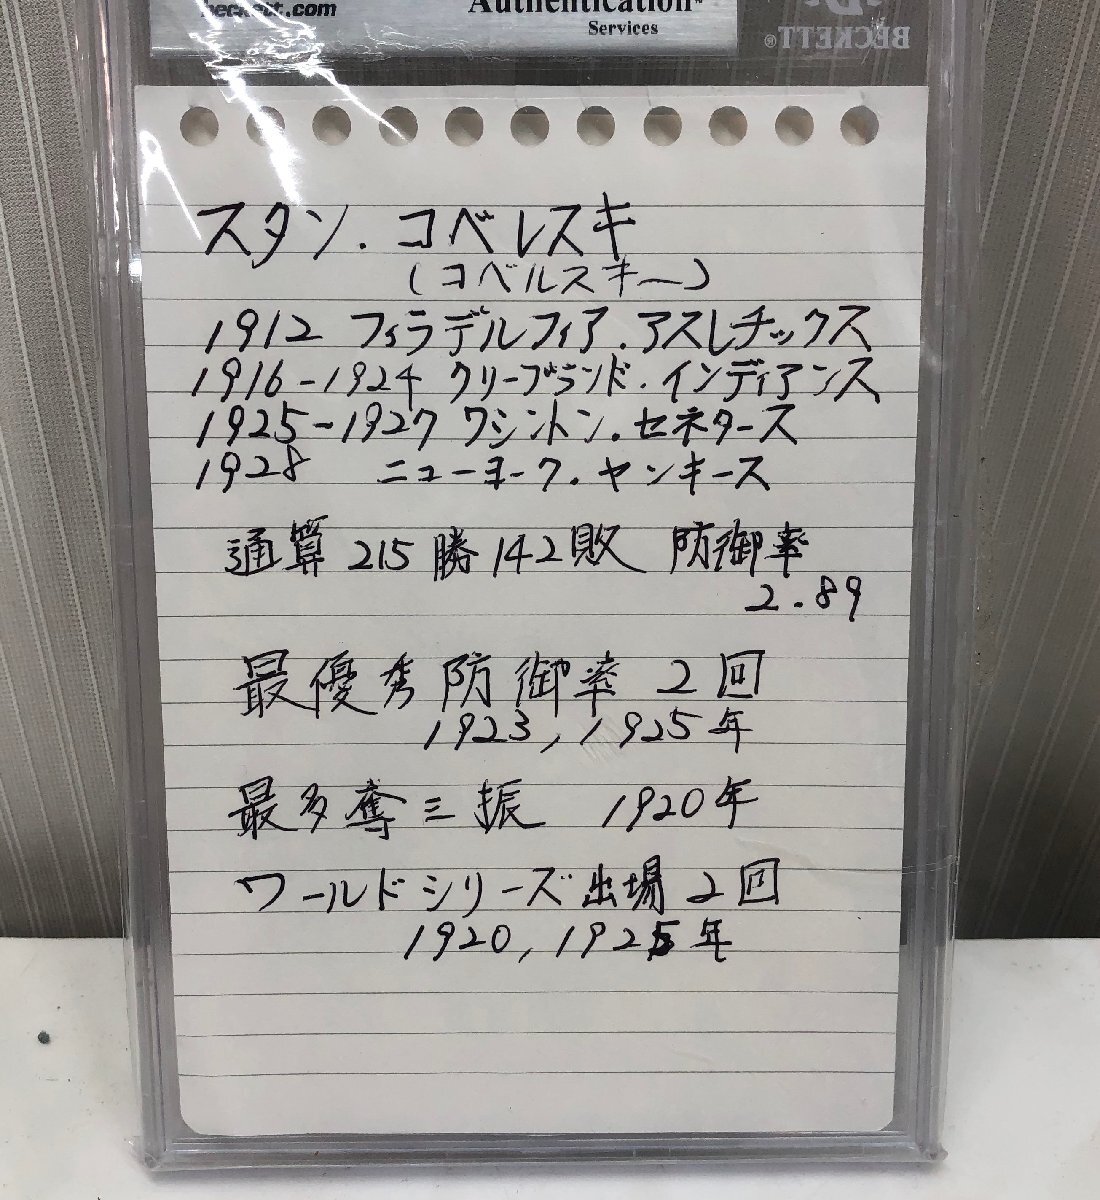 beckett.com
Authentication™
Services
BECKETT®
スタン.コベレスキ
(コベルスキー)
1912 フィラデルフィア.アスレチックス
1916-1924 クリーブランド.インディアンス
1925-1927 ワシントン.セネタース
1928 ニューヨーク.ヤンキース
通算 215勝142敗 防御率
2.89
最優秀防御率 2回
1923, 1925年
最多奪三振 1920年
ワールドシリーズ出場 2回
1920, 1925年